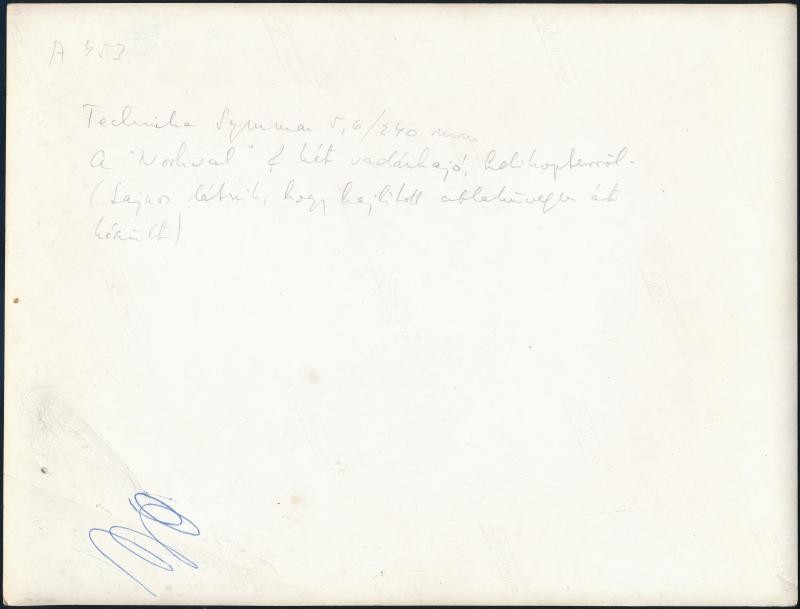 A 453.
Technika Symmar 5,6/240 mm
A "Norhval" & két vadászhajó, helikopterről.
(Sajnos látszik, hogy hajlított ablaküvegen át
készült)